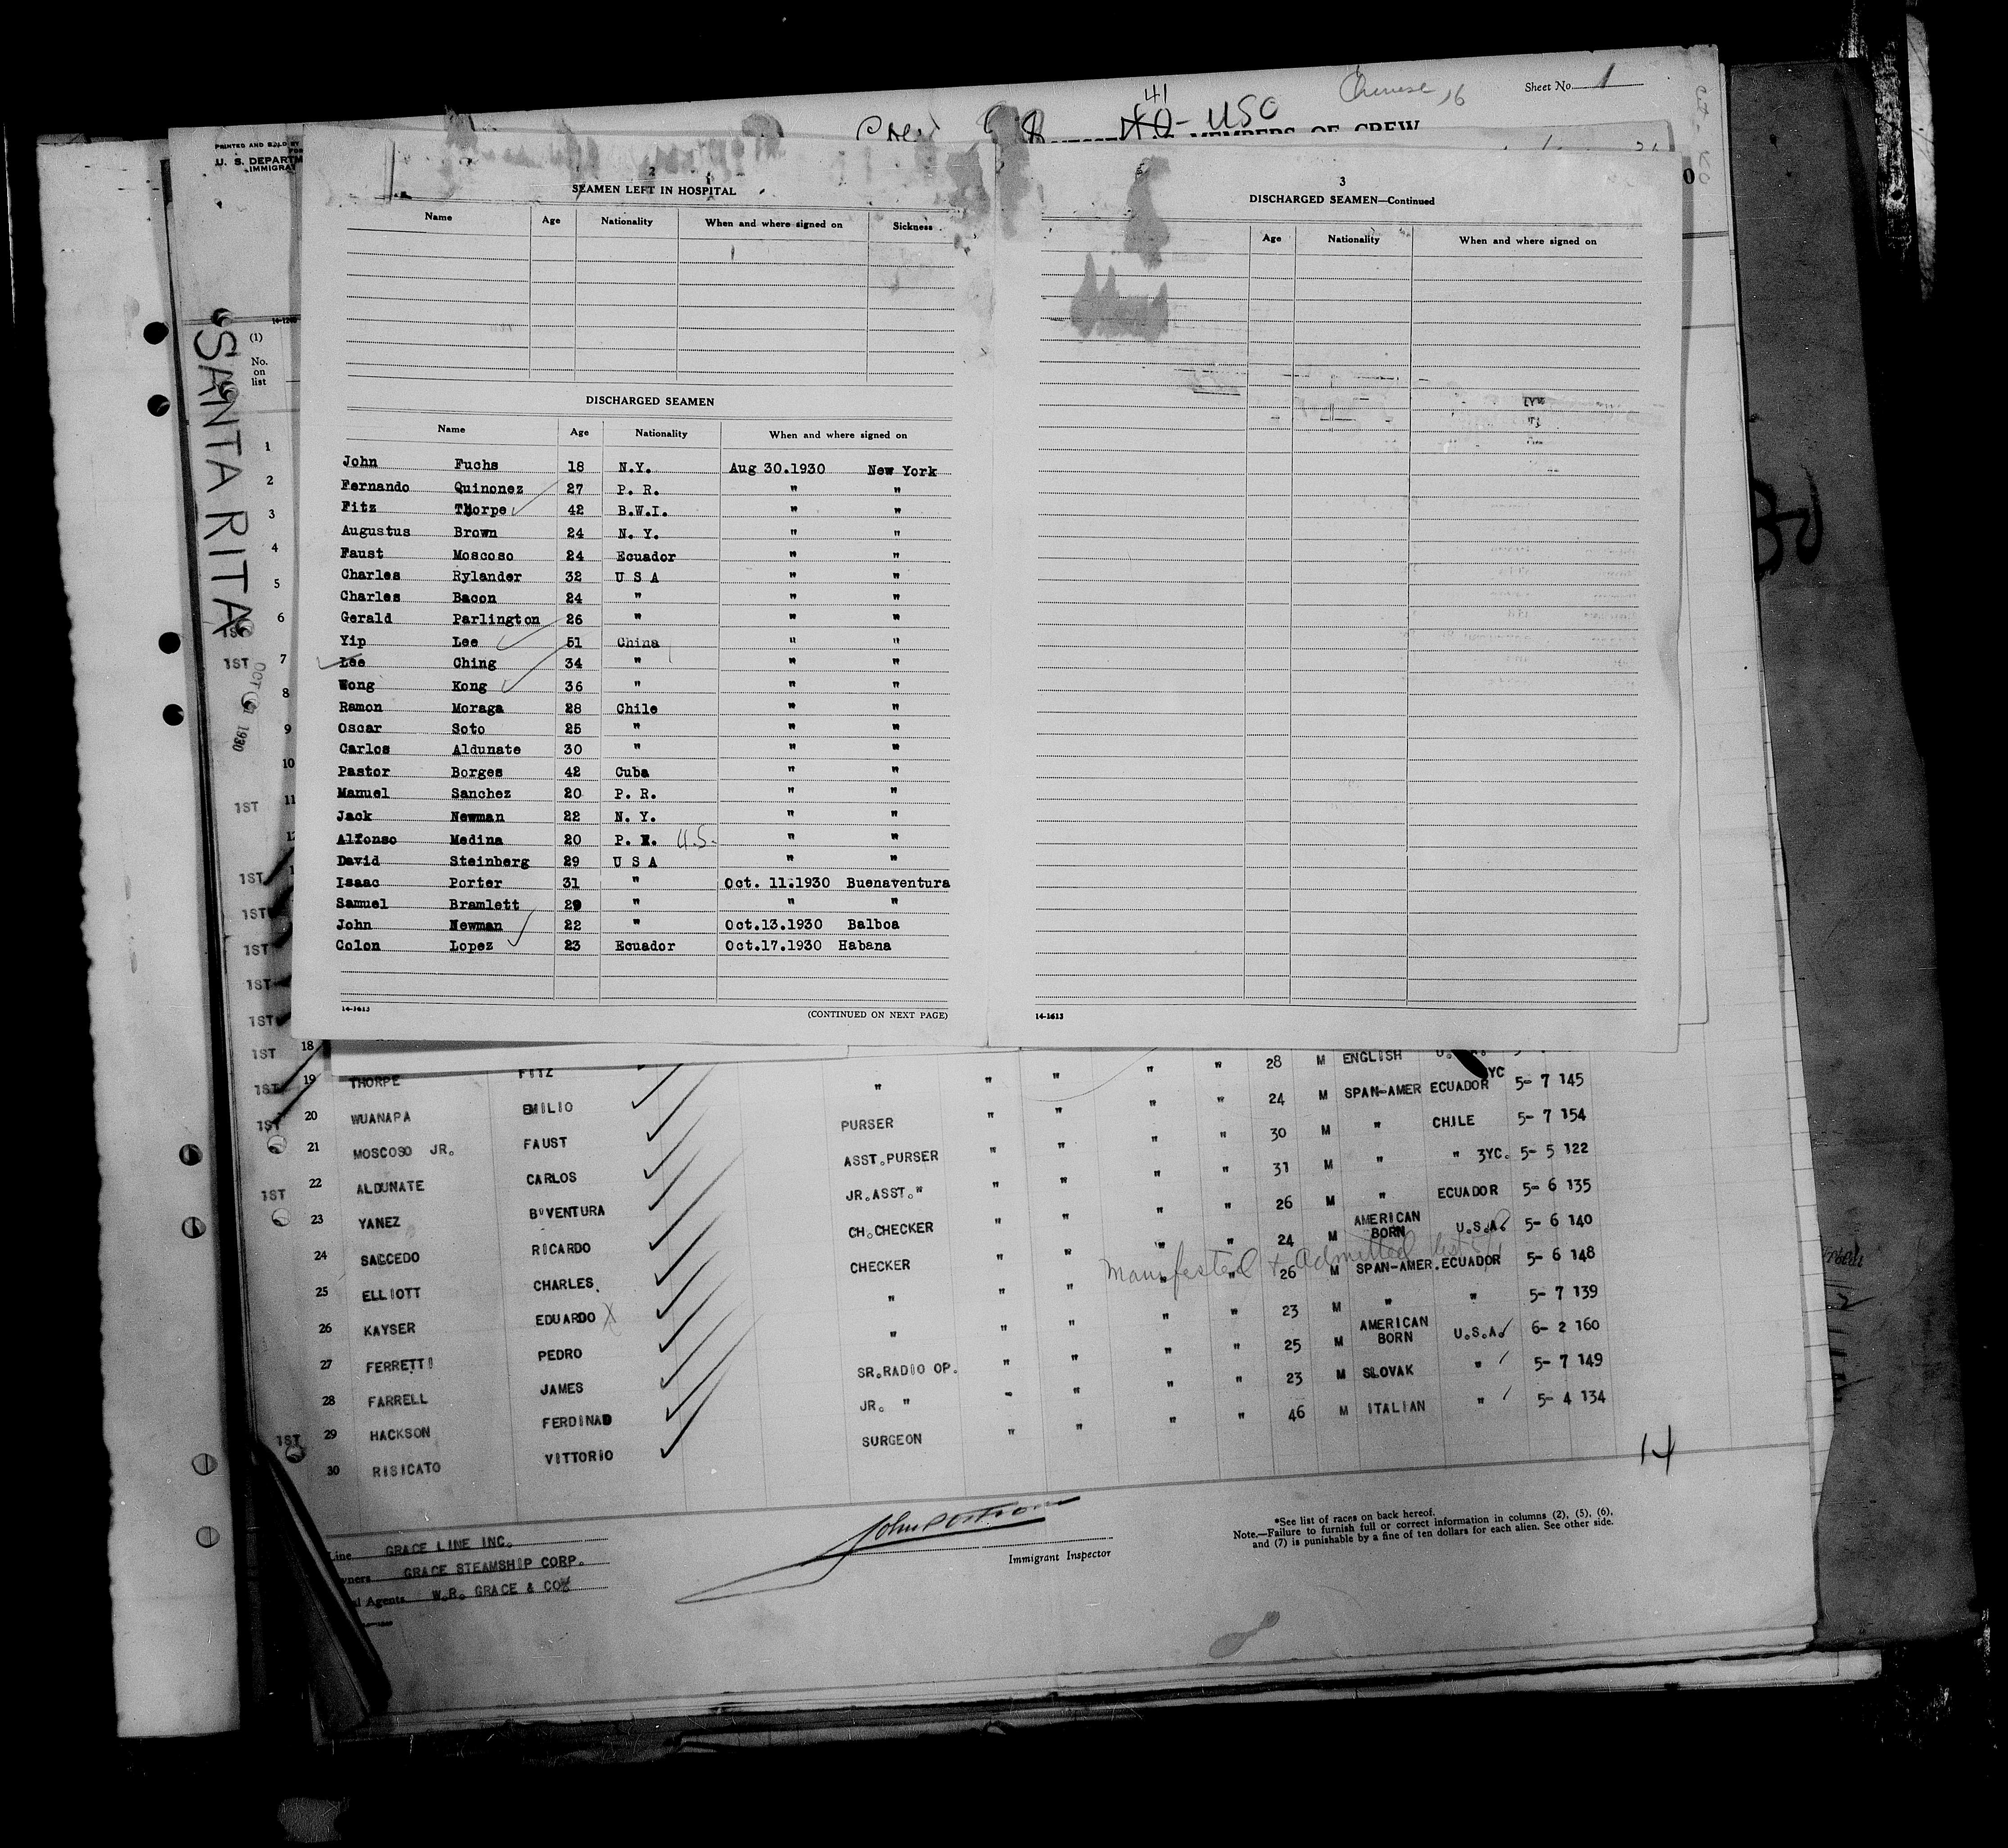 41
Chinese 16
Sheet No. 1
40 - USC
MEMBERS OF CREW
PRINTED AND SOLD BY
U. S. DEPARTM
IMMIGRAT
"SANTA RITA
(1)
No.
on
list
2
SEAMEN LEFT IN HOSPITAL
Name Age Nationality When and where signed on Sickness
DISCHARGED SEAMEN
Name Age Nationality When and where signed on
John Fuchs 18 N.Y. Aug 30.1930 New York
Fernando Quinonez 27 P. R. " "
Fitz Thorpe 42 B.W.I. " "
Augustus Brown 24 N. Y. " "
Faust Moscoso 24 Ecuador " "
Charles Rylander 32 U S A " "
Charles Bacon 24 " " "
Gerald Parlington 26 " " "
Yip Lee 51 China " "
Lee Ching 34 " " "
Wong Kong 36 " " "
Ramon Moraga 28 Chile " "
Oscar Soto 25 " " "
Carlos Aldunate 30 " " "
Pastor Borges 42 Cuba " "
Manuel Sanchez 20 P. R. " "
Jack Newman 22 N. Y. " "
Alfonso Medina 20 P. U.S. " "
David Steinberg 29 U S A " "
Isaac Porter 31 " Oct. 11.1930 Buenaventura
Samuel Bramlett 29 " " "
John Newman 22 " Oct.13.1930 Balboa
Colon Lopez 23 Ecuador Oct.17.1930 Habana
14-1613
(CONTINUED ON NEXT PAGE)
3
DISCHARGED SEAMEN—Continued
Age Nationality When and where signed on
14-1613
1
2
3
4
5
6
1ST
1ST 7
OCT 1930
8
9
10
1ST 11
12
1ST
1ST
1ST
1ST
1ST
1ST 18
1ST 19 THORPE FITZ " " " " " 28 M ENGLISH
1ST 20 WUANAPA EMILIO PURSER " " " " 24 M SPAN-AMER ECUADOR 5- 7 145
21 MOSCOSO JR. FAUST ASST.PURSER " " " " 30 M " CHILE 5- 7 154
1ST 22 ALDUNATE CARLOS JR.ASST." " " " " 31 M " " 3YC. 5- 5 122
23 YANEZ B'VENTURA CH.CHECKER " " " " 26 M " ECUADOR 5- 6 135
24 SALCEDO RICARDO CHECKER " " " " 24 M AMERICAN BORN U.S.A. 5- 6 140
Manifested & Admitted
25 ELLIOTT CHARLES. " " " " " 26 M SPAN-AMER. ECUADOR 5- 6 148
26 KAYSER EDUARDO X " " " " " 23 M " " 5- 7 139
27 FERRETTI PEDRO SR.RADIO OP. " " " " 25 M AMERICAN BORN U.S.A. 6- 2 160
28 FARRELL JAMES JR. " " " " " 23 M SLOVAK " 5- 7 149
1ST 29 HACKSON FERDINAD SURGEON " " " " 46 M ITALIAN " 5- 4 134
30 RISICATO VITTORIO
14
Line GRACE LINE INC.
wners GRACE STEAMSHIP CORP.
l Agents W.R. GRACE & CO
Immigrant Inspector
*See list of races on back hereof.
Note.—Failure to furnish full or correct information in columns (2), (5), (6),
and (7) is punishable by a fine of ten dollars for each alien. See other side.